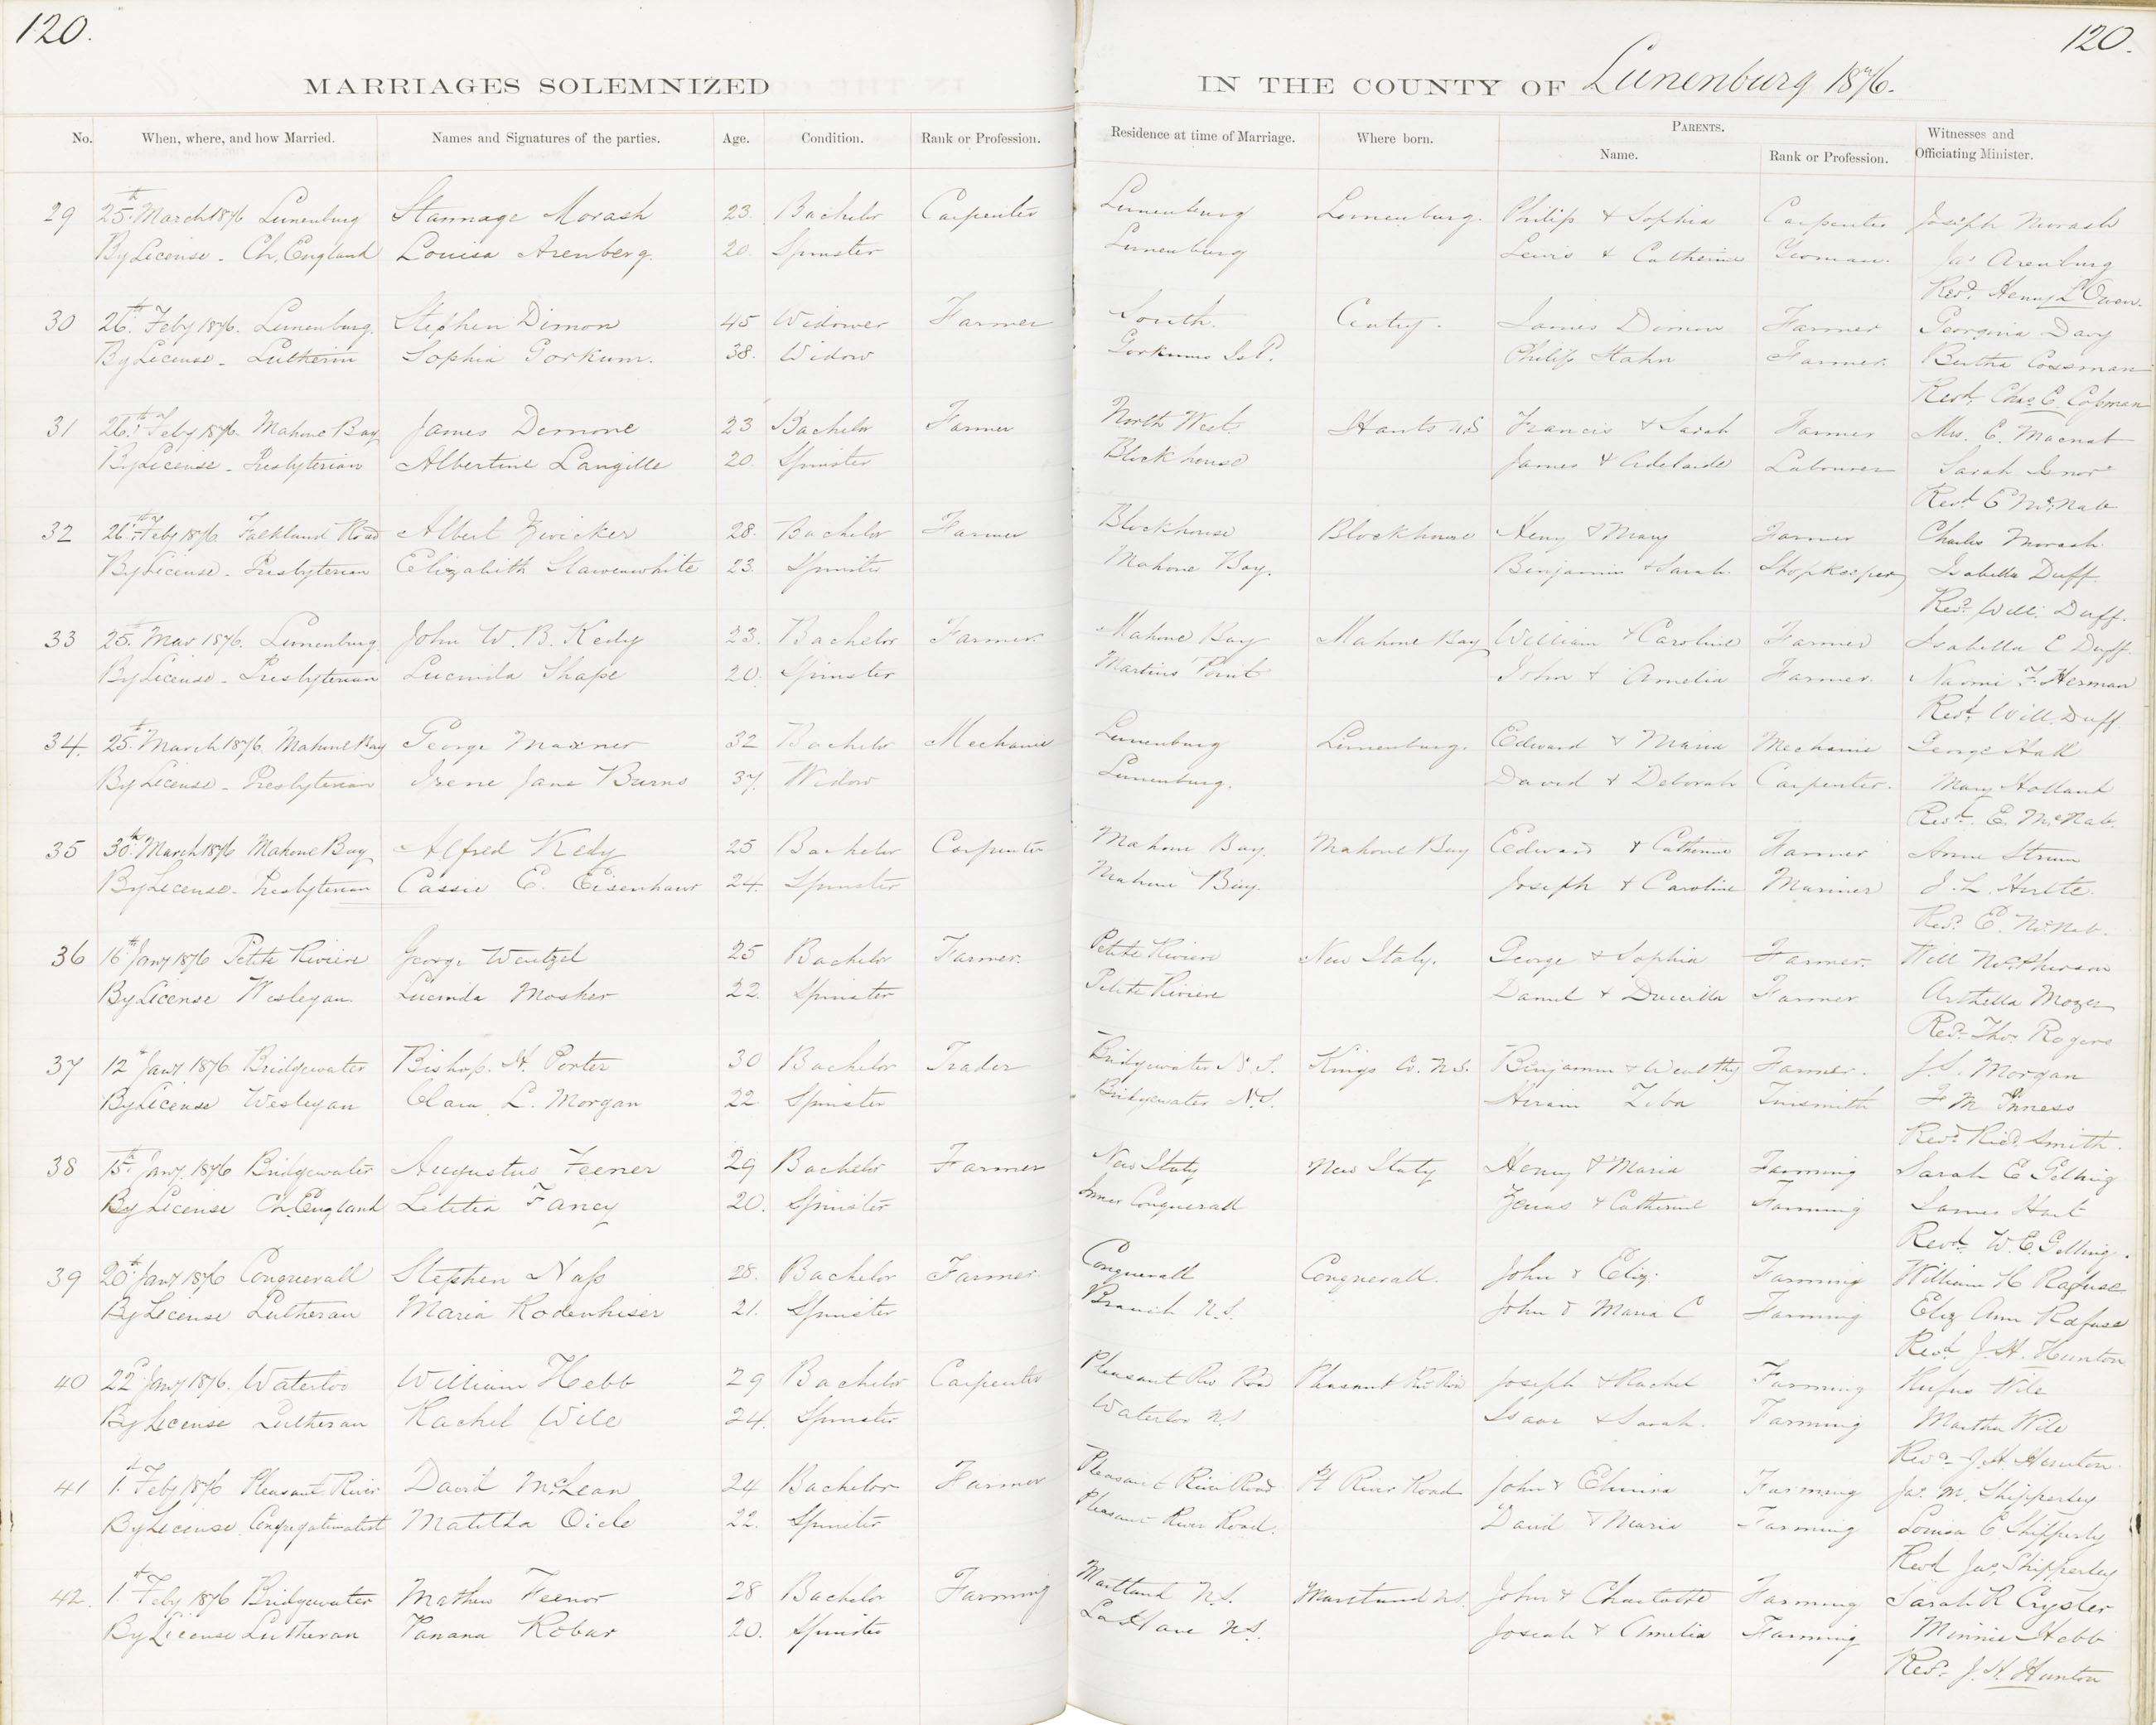 120.
120.
MARRIAGES SOLEMNIZED IN THE COUNTY OF Lunenburg 1876.
No. When, where, and how Married. Names and Signatures of the parties. Age. Condition. Rank or Profession. Residence at time of Marriage. Where born. PARENTS. Witnesses and
Name. Rank or Profession. Officiating Minister.
29 25th March 1876 Lunenburg Stannage Morash 23. Bachelor Carpenter Lunenburg Lunenburg. Philip & Sophia Carpenter Joseph Morash
By License - Ch. England Louisa Arenberg. 20 Spinster Lunenburg Lewis & Catherine Yeoman. Jas Arenburg
Revd. Henry L Owen.
30 26th Feby 1876. Lunenburg. Stephen Dimon 45 Widower Farmer South. Centry. James Dimon Farmer Georgina Davy
By License - Lutheran Sophia Gorkum. 38. Widow Gorkums Philip Hahn Farmer. Bertha Cossman
Revd. Chas E Cossman
31 26th Feby 1876. Mahone Bay James Demone 23 Bachelor Farmer North West. Hants N.S Francis & Sarah Farmer Mrs. E. Macnab
By License - Presbyterian Albertine Langille 20. Spinster Blockhouse James & Adelaide Labourer Sarah Isnor
Revd. E McNab
32 26th Feby 1876. Falkland Road Albert Zwicker 28. Bachelor Farmer Blockhouse Blockhouse Henry & Mary Farmer Charles Morash.
By License - Presbyterian Elizabeth Slawenwhite 23. Spinster Mahone Bay. Benjamin & Sarah. Shopkeeper Isabella Duff.
Revd. Will. Duff.
33 25. Mar 1876. Lunenburg. John W. B. Kedy 23. Bachelor Farmer. Mahone Bay Mahone Bay William & Caroline Farmer Isabella C Duff.
By License - Presbyterian Lucinda Shape 20. Spinster Martins Point John & Amelia Farmer. Naomi F. Herman
Revd. Will. Duff.
34. 25th March 1876. Mahone Bay George Maxner 32 Bachelor Mechanic Lunenburg Lunenburg. Edward & Maria Mechanic George Hall
By License - Presbyterian Irene Jane Burns 37. Widow Lunenburg. David & Deborah Carpenter. Mary Holland
Revd. E. McNab.
35 30th March 1876 Mahone Bay Alfred Kedy 25 Bachelor Carpenter Mahone Bay. Mahone Bay Edward & Catherine Farmer Anne Strum
By License - Presbyterian Cassie E. Eisenhaur 24. Spinster Mahone Bay. Joseph & Caroline Mariner J. L. Hirtle.
Revd. E. McNab.
36 16th Jany 1876 Petite Riviere George Wentzel 25 Bachelor Farmer. Petite Riviere New Italy. George & Sophia Farmer. Will McPherson
By License Wesleyan Lucinda Mosher 22. Spinster Petite Riviere Daniel & Drucilla Farmer Arthella Mozer
Revd. Thos. Rogers
37 12th Jany 1876 Bridgewater Bishop. H. Porter 30 Bachelor Trader Bridgewater N.S. Kings Co. N.S. Benjamin & Wealthy Farmer. J.S. Morgan
By License Wesleyan Clara L. Morgan 22 Spinster Bridgewater N.S. Hiram Ziba Tinsmith F M Inness
Revd. Richd. Smith.
38 15th Jany 1876 Bridgewater Augustus Feener 29 Bachelor Farmer New Italy New Italy Henry & Maria Farming Sarah E Gelling
By License Ch. England Letitia Fancy 20. Spinster Inner Conquerall & Catherine Farming James Hart
Revd. W. E. Gelling.
39 20th Jany 1876 Conquerall Stephen Nass 28. Bachelor Farmer Conquerall Conquerall. John & Eliz. Farming William H Rafuse
By License Lutheran Maria Rodenhiser 21. Spinster Branch N.S. John & Maria C Farming Eliz Ann Rafuse
Revd J. H. Hunton
40 22d Jany 1876. Waterloo William Hebb 29 Bachelor Carpenter Pleasant Riv Rd Pleasant Riv Rd Joseph & Rachel Farming Rufus Wile
By License Lutheran Rachel Wile 24. Spinster Waterloo N.S Isaac & Sarah. Farming Martha Wile
Revd. J. H. Hunton.
41 1st Feby 1876 Pleasant River David McLean 24 Bachelor Farmer Pleasant River Road Pt River Road John & Elmira Farming Jas. M. Shipperley
By License Congregationalist Matilda Oicle 22. Spinster Pleasant River Road. David & Maria Farming Louisa E Shipperly
Revd Jas. Shipperley
42. 1st Feby 1876 Bridgewater Mathew Feener 28 Bachelor Farming Maitland N.S. Maitland N.S. John & Charlotte Farming Sarah R Cryster
By License Lutheran Vanana Robar 20. Spinster LaHave N.S. Josiah & Amelia Farming Minnie Hebb
Revd. J. H. Hunton